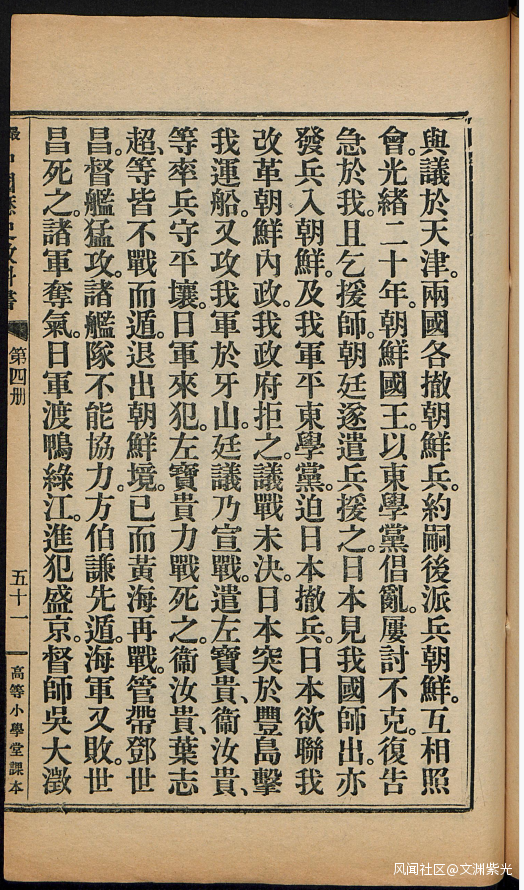 與議於天津。兩國各撤朝鮮兵。約嗣後派兵朝鮮。互相照
會。光緒二十年。朝鮮國王。以東學黨倡亂。屢討不克。復告
急於我。且乞援師。朝廷遂遣兵援之。日本見我國師出。亦
發兵入朝鮮。及我軍平東學黨。迫日本撤兵。日本欲聯我
改革朝鮮內政。我政府拒之。議戰未決。日本突於豐島擊
我運船。又攻我軍於牙山。廷議乃宣戰。遣左寶貴、衞汝貴、
等率兵守平壤。日軍來犯。左寶貴力戰死之。衞汝貴、葉志
超、等皆不戰而遁。退出朝鮮境。已而黃海再戰。管帶鄧世
昌。督艦猛攻。諸艦隊不能協力。方伯謙先遁。海軍又敗。世
昌死之。諸軍奪氣。日軍渡鴨綠江。進犯盛京。督師吳大澂
國歷史教科書 第四册 五十一 高等小學堂課本
风闻社区@文洲紫光